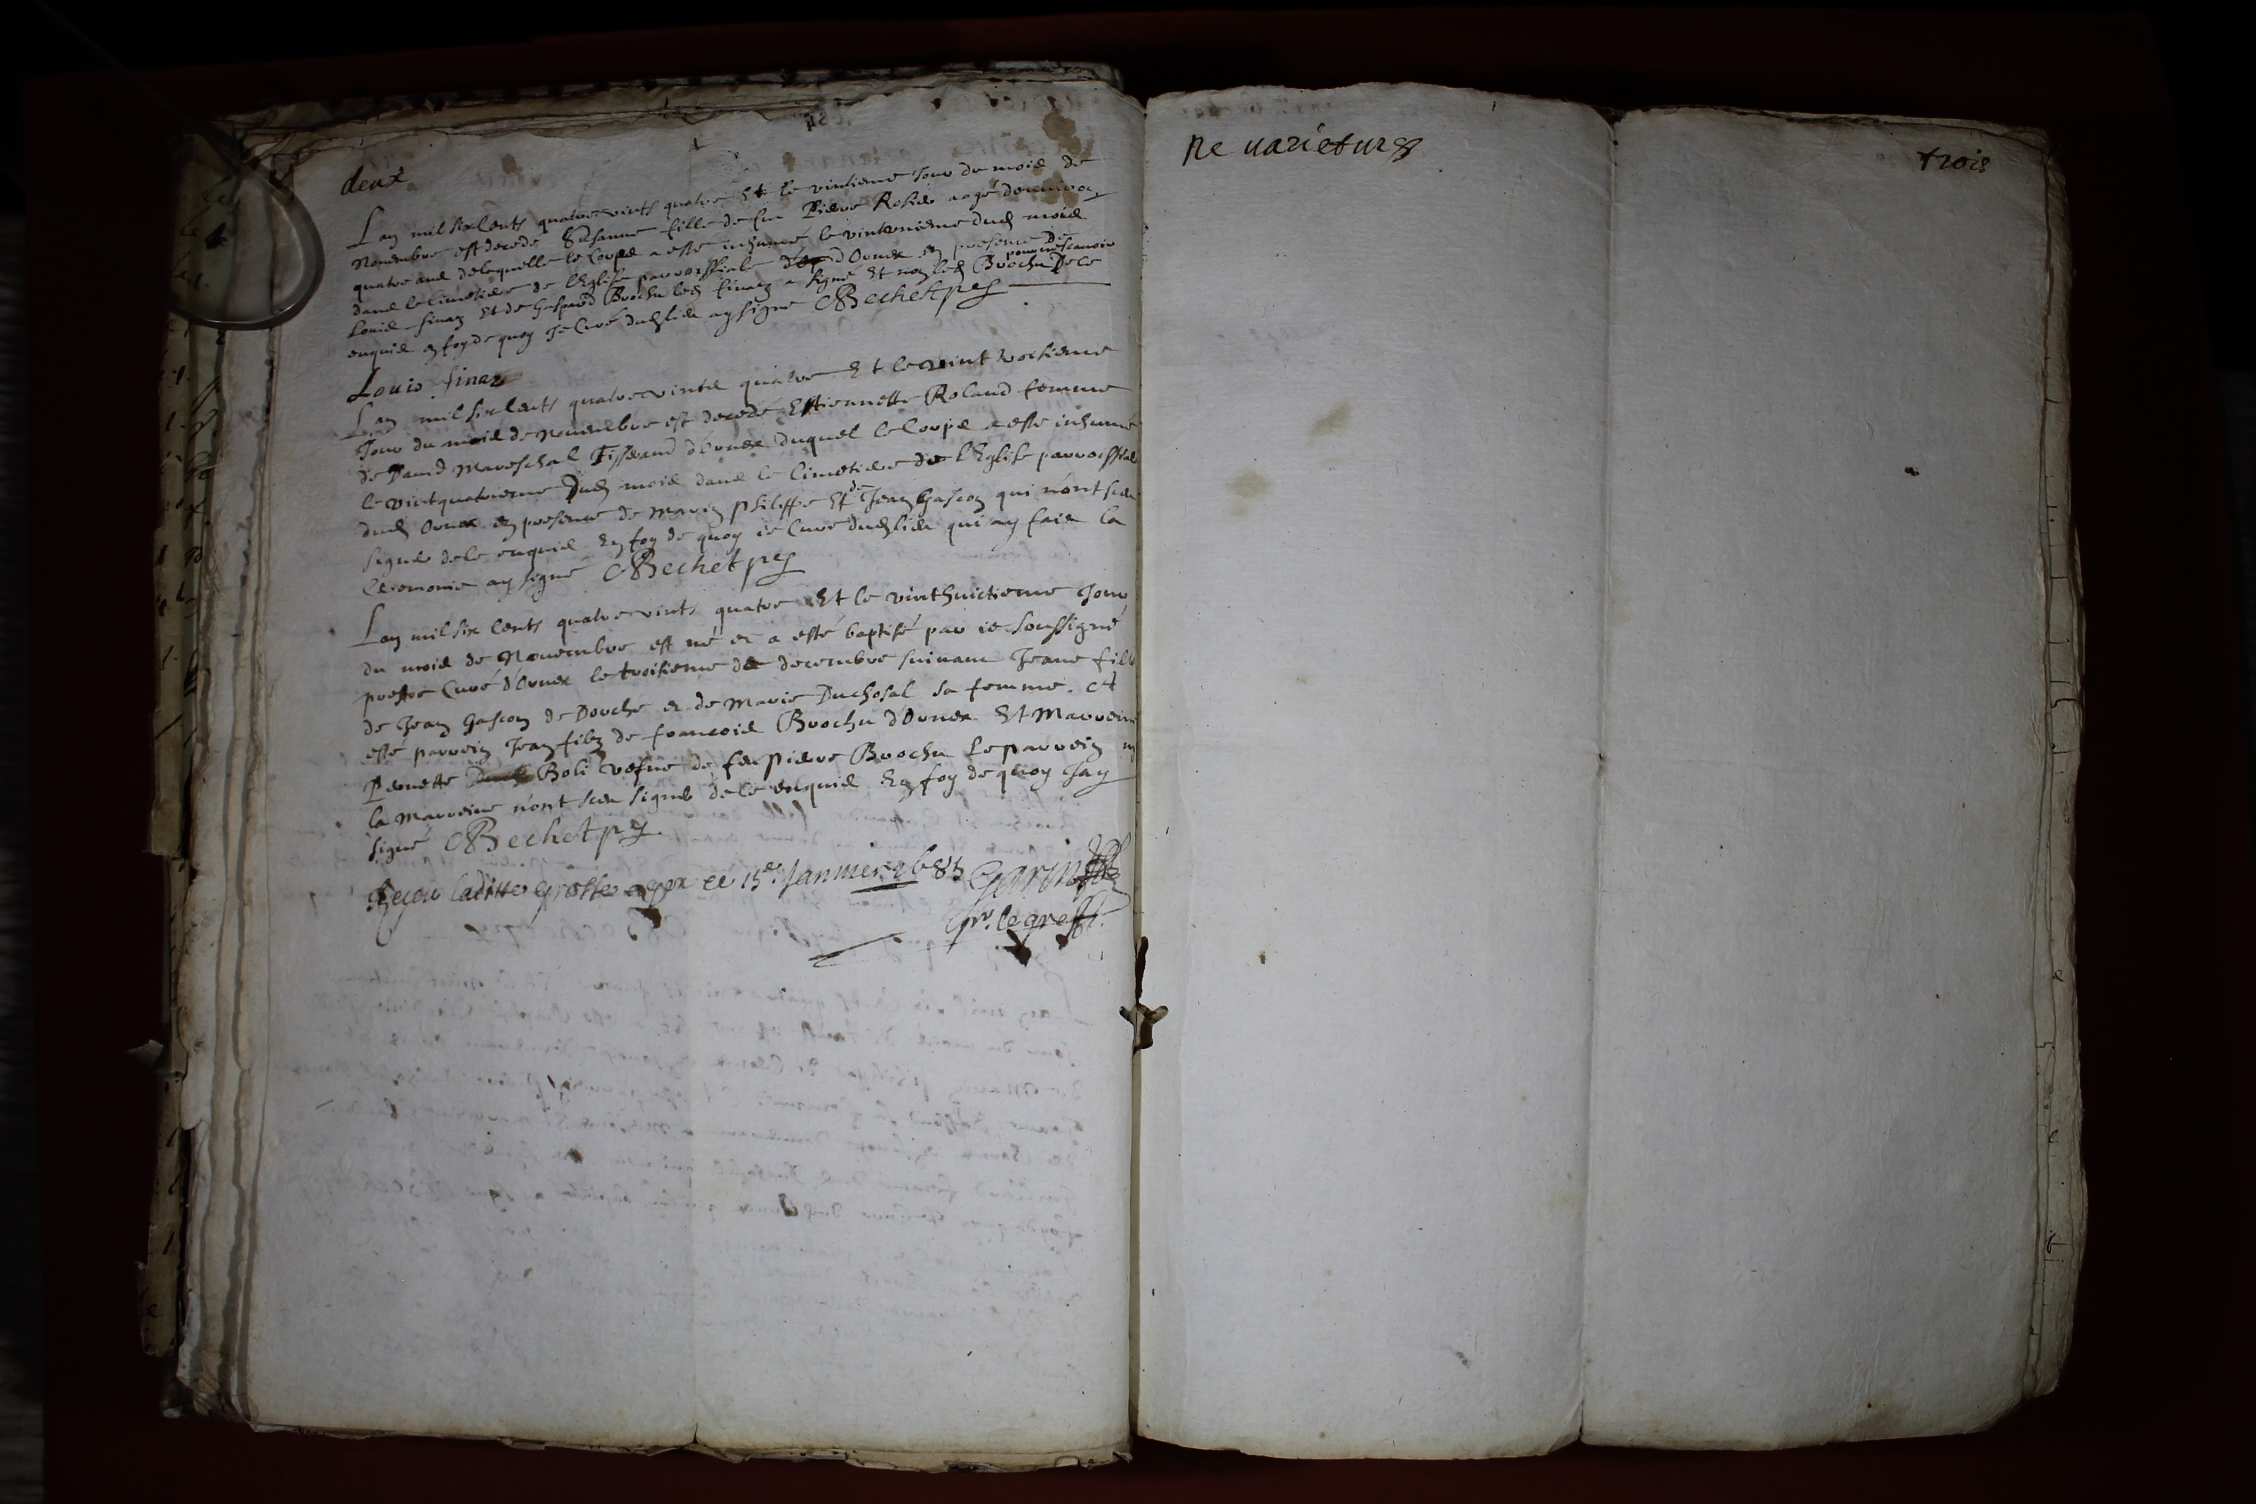 deux
Lan mil six Cents quatre vints quatre Et le vintieme Jour du mois de
Novembre est decede Susanne fille de feu Pierre Rosier aagé denviron
quatre ans delaquelle le Corps a esté inhumé le vintunieme dud mois
dans le Cimetiere de l'Eglise parroissiale d'Ornex en presence de
Louis finaz Et de Gaspard Brochu led finaz a signé Et non led Brochu pour ne scavoir De ce
enquis en foy de quoy Je Curé dud lieu ay signé Bechet pbr
Louis finaz
Lan mil six Cents quatre vints quatre Et le vint troisieme
Jour du mois de Novembre est decedé Estiennette Roland femme
de David Mareschal Tisserand d'Ornex duquel le Corps a esté inhumé
le vintquatrieme Dud mois dans le Cimetiere de l'Eglise parroissiale
dud Ornex en presence de Marin philippe Et de Jean Gascon qui n'ont sceu
signer de ce enquis En foy de quoy ie Curé dud lieu qui ay fait la
Ceremonie ay signé Bechet pbr
Lan mil six Cents quatre vints quatre Et le vinthuictieme Jour
du mois de Novembre est né et a esté baptisé par ie soussigné
prestre Curé d'Ornex le troisieme de decembre suivant Jeane fille
de Jean Gascon de Douche et de Marie Duchosal sa femme. et
esté parrein Jean filz de francois Brochu d'Ornex Et Marreine
Pernette Boli vefue de feu Pierre Brochu Le parrein ny
la Marreine n'ont sceu signer de ce enquis En foy de quoy Jay
signé Bechet pbr
Reçeu laditte grosse a gex ce 15e. Januier 1685 Garin
pr. le greff.
Ne uarietur
trois